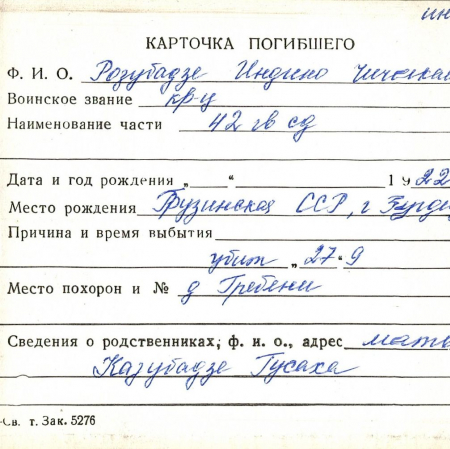 ин
КАРТОЧКА ПОГИБШЕГО
Ф. И. О. Розубадзе Индико
Воинское звание кр-ц
Наименование части 42 гв сд
Дата и год рождения „ “ 1922
Место рождения Грузинская ССР, г
Причина и время выбытия
убит „27“ 9
Место похорон и № д Гребени
Сведения о родственниках, ф. и. о., адрес мать
Казубадзе Гусаха
-Св. т. Зак. 5276